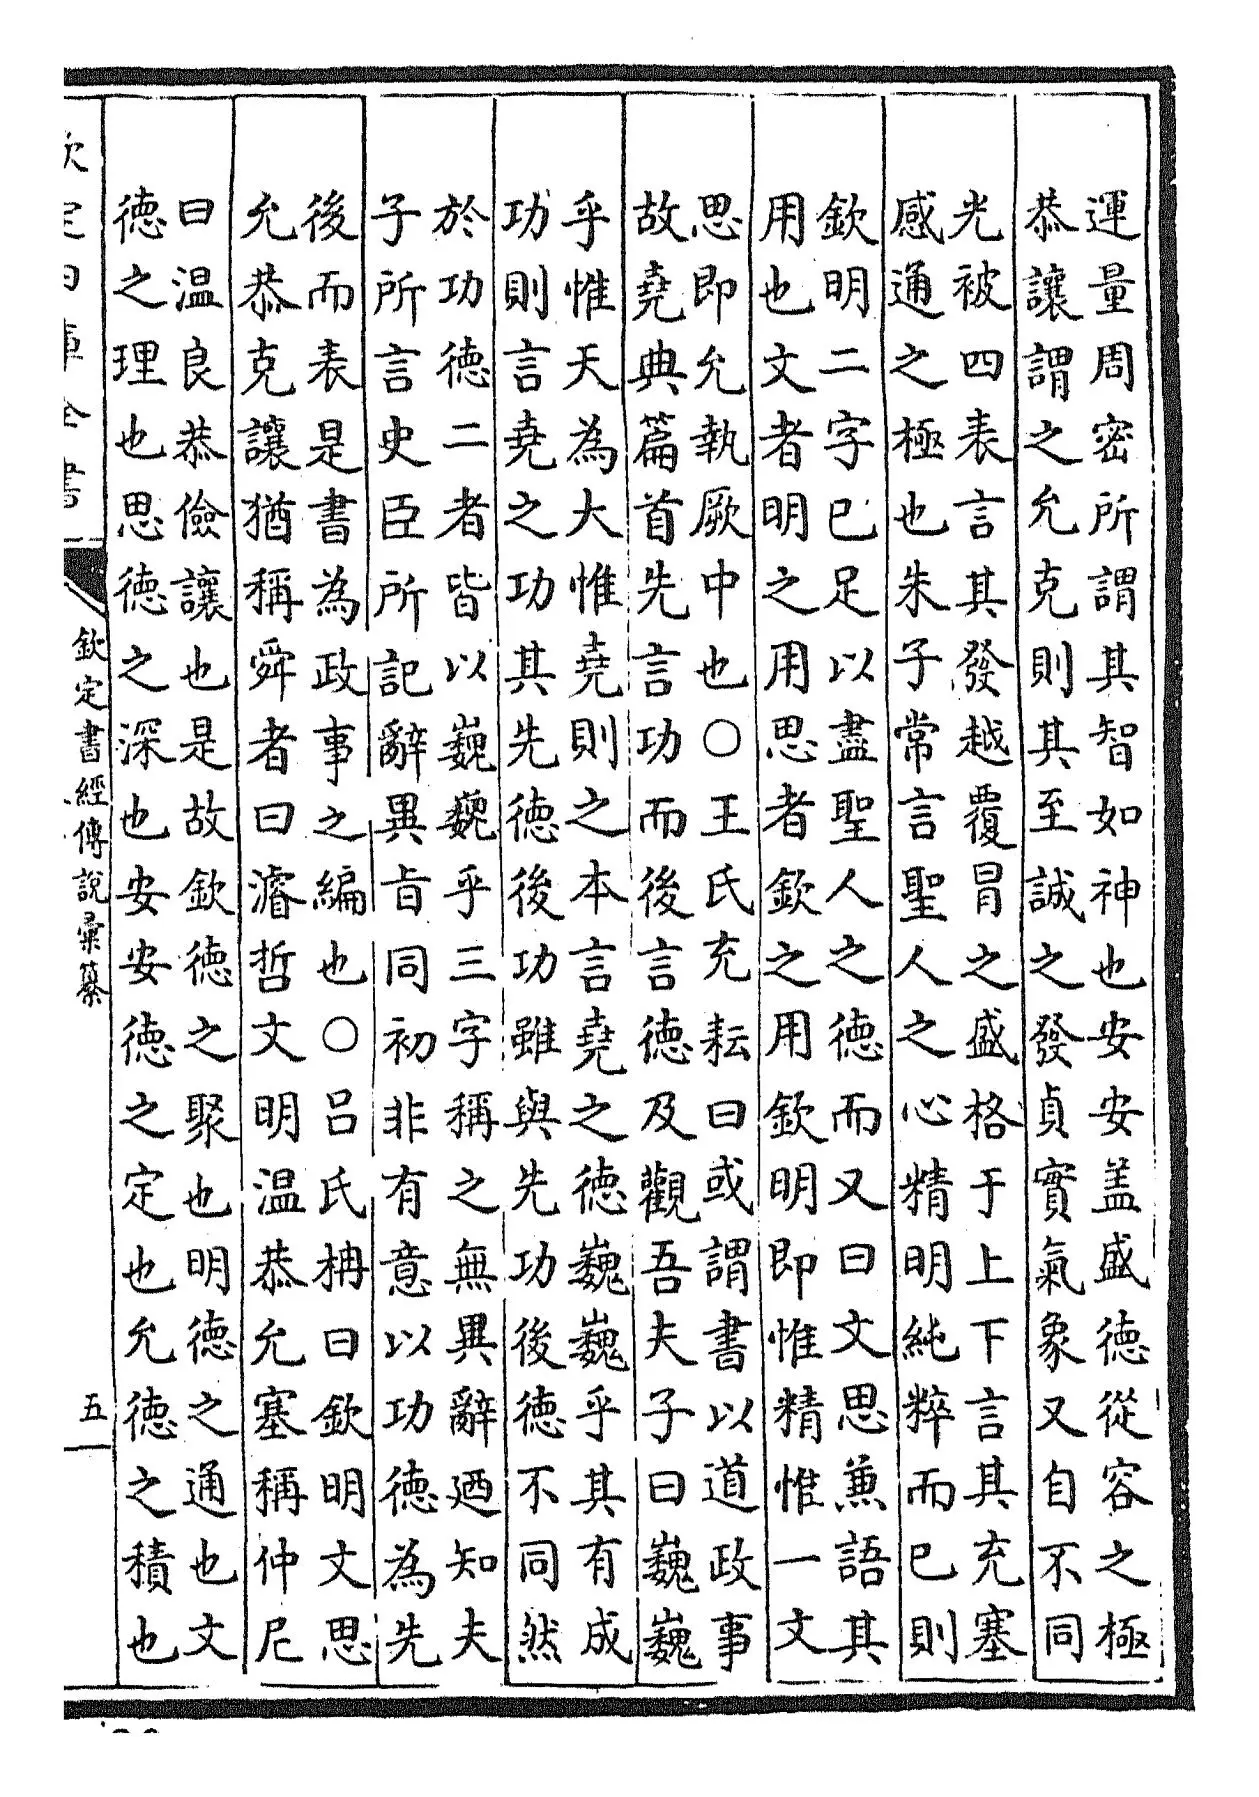 運量周密所謂其智如神也安安盖盛德從容之極
恭讓謂之允克則其至誠之發貞實氣象又自不同
光被四表言其發越覆冒之盛格于上下言其充塞
感通之極也朱子常言聖人之心精明純粹而已則
欽明二字已足以盡聖人之德而又曰文思兼語其
用也文者明之用思者欽之用欽明即惟精惟一文
思即允執厥中也○王氏充耘曰或謂書以道政事
故堯典篇首先言功而後言德及觀吾夫子曰巍巍
乎惟天為大惟堯則之本言堯之德巍巍乎其有成
功則言堯之功其先德後功雖與先功後德不同然
於功德二者皆以巍巍乎三字稱之無異辭廼知夫
子所言史臣所記辭異旨同初非有意以功德為先
後而表是書為政事之編也○呂氏柟曰欽明文思
允恭克讓猶稱舜者曰濬哲文明温恭允塞稱仲尼
曰温良恭儉讓也是故欽德之聚也明德之通也文
德之理也思德之深也安安德之定也允德之積也
欽定四庫全書
欽定書經傳說彙纂
五